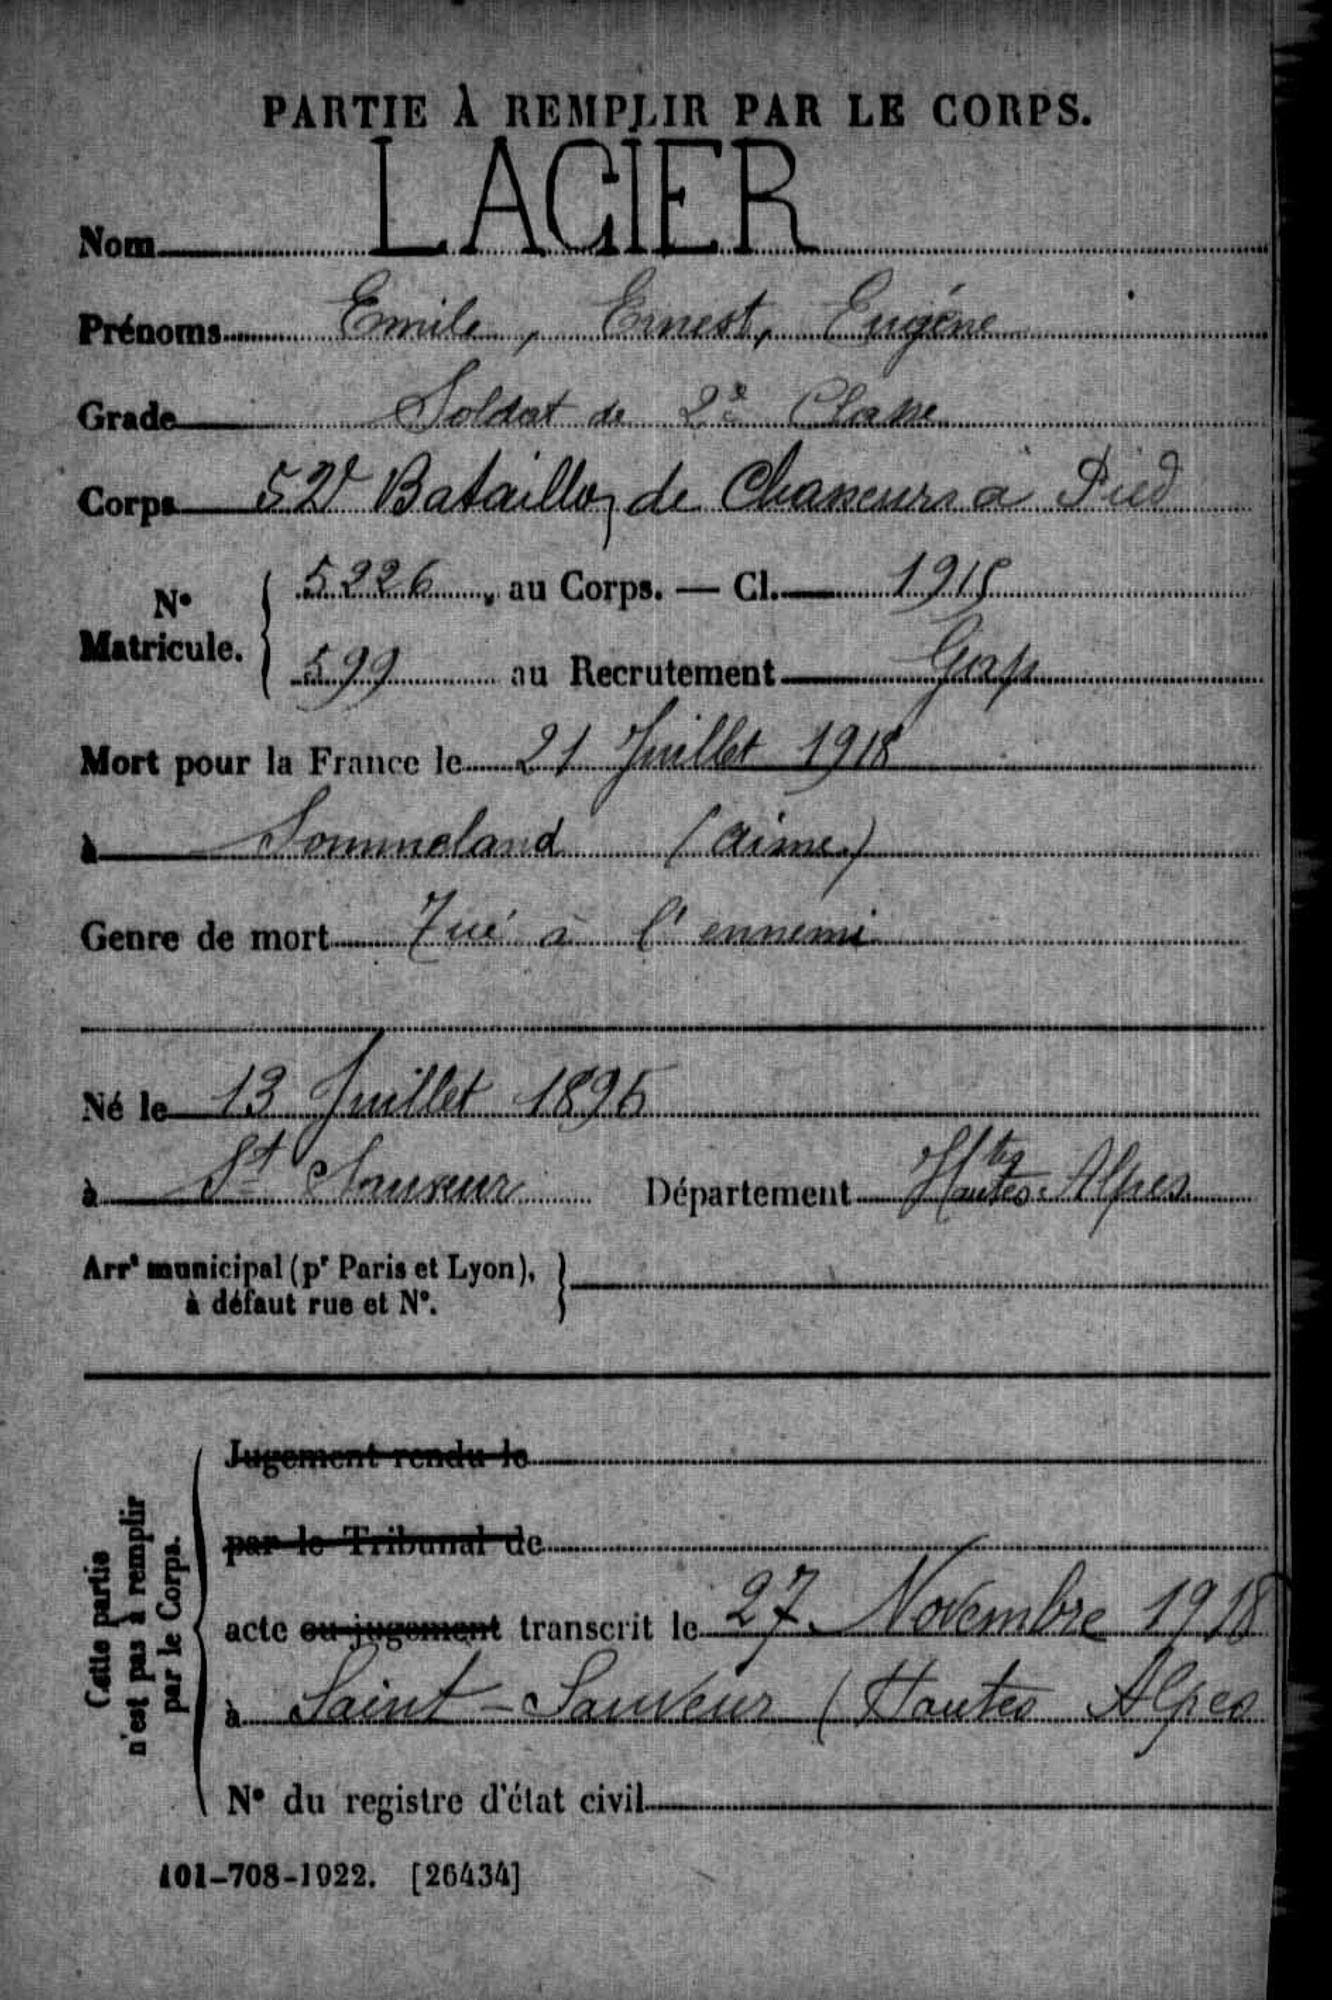 PARTIE À REMPLIR PAR LE CORPS.
Nom LAGIER
Prénoms Emile, Ernest, Eugéne
Grade Soldat de 2e Classe
Corps 52e Bataillon de Chasseurs à Pied
No Matricule. { 5226, au Corps. — Cl. 1915
599 au Recrutement Gap
Mort pour la France le 21 Juillet 1918
à Sommeland (aisne)
Genre de mort Tué à l'ennemi
Né le 13 Juillet 1895
à St Sauveur Département Htes Hautes-Alpes
Arrt municipal (pr Paris et Lyon),
à défaut rue et No. }
Cette partie
n'est pas à remplir
par le Corps.
Jugement rendu le
par le Tribunal de
acte ou jugement transcrit le 27 Novembre 1918
à Saint-Sauveur (Hautes Alpes
No du registre d'état civil
101-708-1922. [26434]